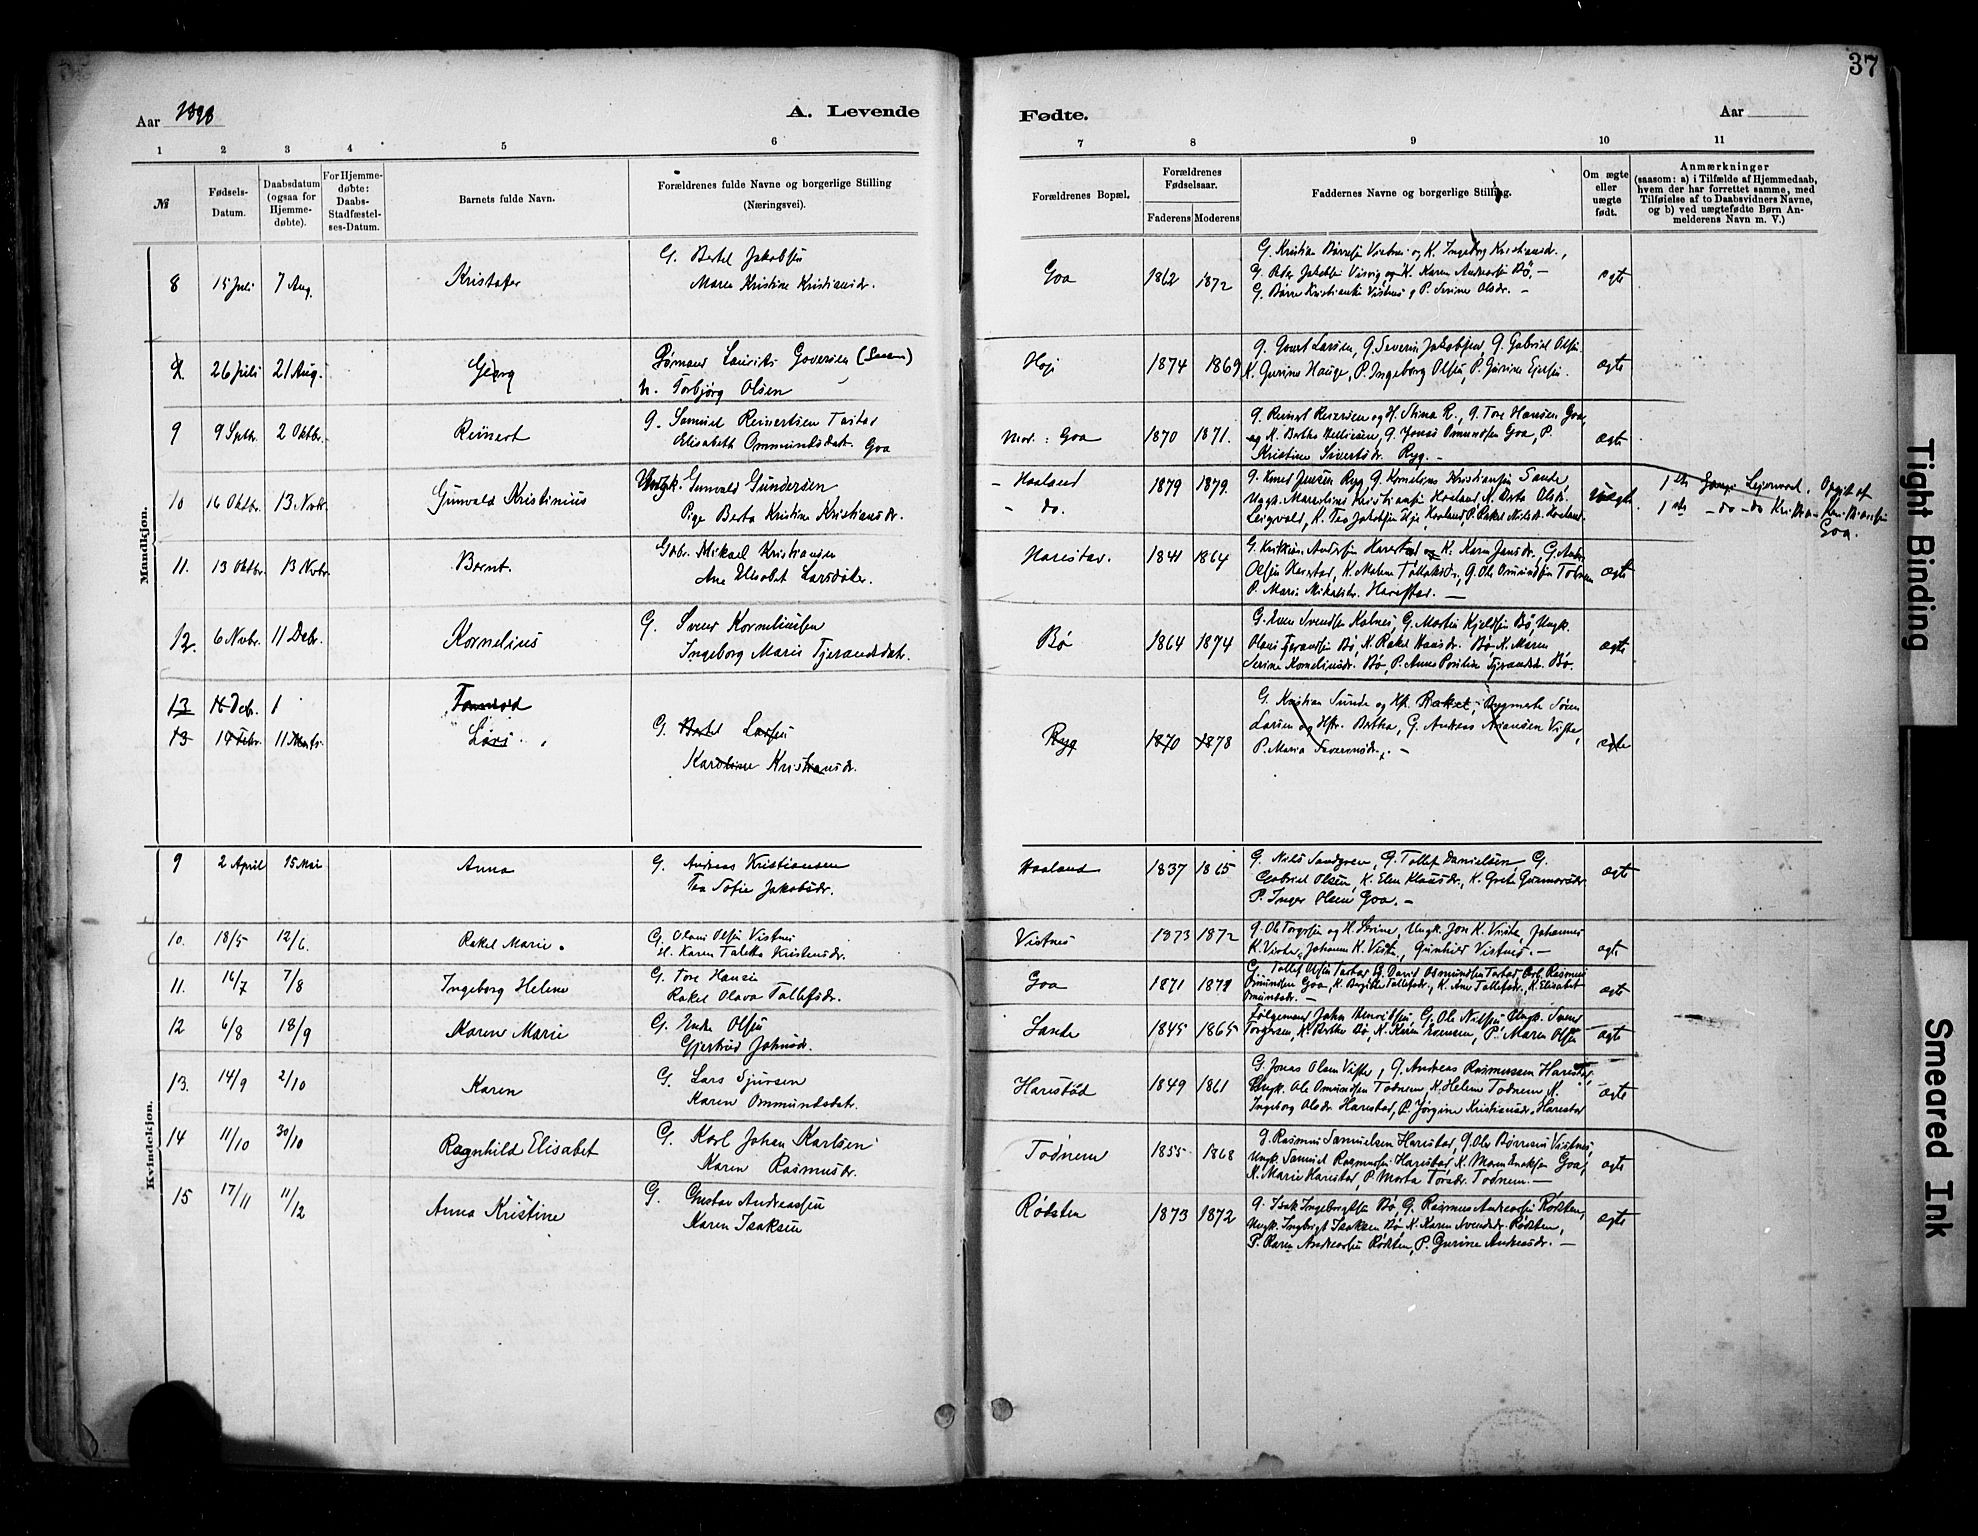 37
Aar 1898
A. Levende
Fødte.
Aar
1 2 3 4 5 6
7 8 9 10 11
№
Fødsels-Datum.
Daabsdatum (ogsaa for Hjemmedøbte).
For Hjemmedøbte: Daabs-Stadfæstelses-Datum.
Barnets fulde Navn.
Forældrenes fulde Navne og borgerlige Stilling
(Næringsvei).
Forældrenes Bopæl.
Forældrenes Fødselsaar.
Faderens Moderens
Faddernes Navne og borgerlige Stilling.
Om ægte eller uægte født.
Anmærkninger
(saasom: a) i Tilfælde af Hjemmedaab,
hvem der har forrettet samme, med
Tilføielse af to Daabsvidners Navne,
og b) ved uægtefødte Børn Anmelderens Navn m. V.)
Mandkjøn.
8 15 Juli 7 Aug. Kristofer G. Bertel Jakobsen
Maren Kristine Kristiansdr.
Goa 1862 1872 G. Kristian Børresen Vistnes og K. Ingeborg Kristiansdr.,
G. Peder Jakobsen Visvig og K. Karen Andersen Bø, –
G. Børre Kristiansen Vistnes og P. Serine Olsdr. –
egte
26 Juli 21 Aug. Georg Lauriks Goversen
Torbjørg Olsen
1874 1869 G. Govert Larsen, G. Severin Jakobsen, G. Gabriel Olsen
K. Gurine Hauge, P. Ingeborg Olsen, P. Gurine
ægte
9 9 Sptbr. 2 Oktbr. Reinert G. Samuel Reinertsen Tastad
Elisabeth Ommundsdatr. Goa
Mor: Goa 1870 1871. G. Reinert og H. Stina R., G. Tore Hansen Goa,
og K. Berthe G. Jonas Omundsen Goa, P.
Kristine Sivertsdr. Ryg. –
ægte
10 16 Oktbr. 13 Novbr. Gunvald Kristinius Ungk. Gunvald Gundersen
Pige Berta Kristine Kristiansdr.
– Haaland
– do.
1879 1879. G. Knud Jensen Ryg G. Kornelius Kristiansen Sande,
Ungk. Kristiansen Haaland K. Berta Olsdr.
K. Tea Jakobsen Haaland P. Rakel Nilsdr. Haaland.
uægte
1ste Leiermaal. Opgit af
1ste – do – do Kristian Kristiansen
Goa.
11. 13 Oktbr. 13 Nvbr. Bernt. Gbr. Mikael Kristiansen
Ane Elisabet Larsdatter.
Harestad. 1841 1864 G. Andersen Harestad og K. Karen Jansdr., G.
Olsen Harestad, K. Malene G. Ole Omundsen Todnem
P. Marie Harestad. –
ægte
12. 6 Nvbr. 11 Debr. Kornelius G. Svend Korneliussen
Ingeborg Marie Tjerandsdatr.
Bø 1864 1874 G. Svendsen Kalnes, G. Martin Kjeldsen Bø, Ungk.
Olaus Tjerandsen Bø, K. Rakel Bø K. Maren
Serine Korneliusdr. Bø, P. Anne Tjerandsd. Bø.
ægte
13 Debr. 1
13 19 Febr. 11 Marts. Lars G. Bertel Larsen
Karoline Kristiansdr.
Ryg 1870 1878 G. Kristian Sunde og Hf. Rakel, Søren
Larsen og Hstr. Bertha, G. Andreas Viste,
P. Maria –
egte
Kvindekjøn.
9 2 April 15 Mai Anna G. Andreas Kristiansen
Tea Sofie Jakobsdr.
Haaland 1837 1865 G. Nils Sandgren, G. Tollef Danielsen G.
Gabriel Olsen, K. Elen Klausdr., K. Grete Gunnarsdr.
P. Inger Olsen Goa. –
ægte
10. 18/5 12/6. Rakel Marie. G. Olaus Olsen Vistnes
H. Karen Taletta Kristensdr.
Vistnes 1873 1872 G. Ole Torgersen og H. Serine, Ungk. Jon K. Viste, Johannes
K. Viste, Johanne K. Viste, Gunhild Vistnes. –
ægte
11. 16/7 7/8 Ingeborg Helene G. Tore Hansen
Rakel Olava Tollefsdr.
Goa 1871 1879 G. Tollef Olsen Tastad G. David Osmundsen Tastad, Rasmus
Omundsen Goa, K. Birgitte Tollefsdr., K. Ane Tollefsdr., K. Elisabet
Omundsdr. –
ægte
12 6/8 18/9 Karen Marie G. Endre Olsen
Gjertrud Johnsdr.
Sande 1845 1865 Følgemand John Henriksen G. Ole Nilsen Ungk. Svend
Torgersen, K. Berthe Bø, K. Karen P. Maren Olsen
ægte
13. 14/9 2/10 Karen G. Lars Sjursen
Karen Ommundsdatr.
Harestad 1849 1861 G. Jonas Olsen Viste, G. Andreas Rasmussen Harestad,
Ungk. Ole Omundsen Todnem, K. Helene Todnem K.
Ingeborg Olsdr. Harestad, P. Jørgine Kristiansdr. Harestad
ægte
14 11/10 30/10 Ragnhild Elisabet G. Karl Johan Karlsen
Karen Rasmusdr.
Todnem 1855 1868 G. Rasmus Samuelsen Harestad, G. Ole Børresen Vistnes,
Ungk. Samuel Rasmussen Harestad, K. Maren Goa,
K. Marie Harestad, P. Marta Torsdr. Todnem. –
ægte
15 17/11 11/12 Anna Kristine G. Gustav Andreassen
Karen Isaksen
Rødsten 1873 1872 G. Isak Ingebrigtsen Bø, G. Rasmus Andreassen Rødsten,
Ungk. Ingbrigt Isaksen Bø K. Karen Svendsdr. Rødsten,
P. Karen Andreassen Rødsten, P. Gurine Andreasdr. –
ægte
Tight Binding
Smeared Ink